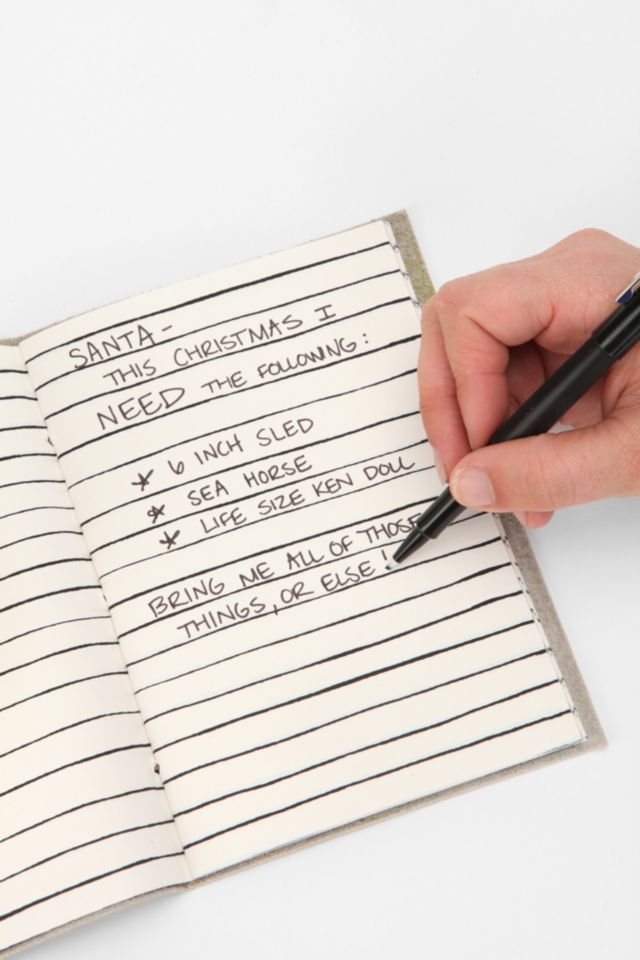 SANTA-
THIS CHRISTMAS I
NEED THE FOLLOWING:
* 6 INCH SLED
* SEA HORSE
* LIFE SIZE KEN DOLL
BRING ME ALL OF THOSE
THINGS, OR ELSE!